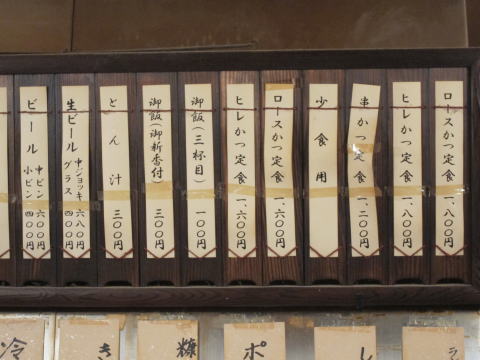 ロースかつ定食 一、八〇〇円
ヒレかつ定食 一、八〇〇円
串かつ定食 一、二〇〇円
少食用
ロースかつ定食 一、六〇〇円
ヒレかつ定食 一、六〇〇円
御飯(三杯目) 一〇〇円
御飯(御新香付) 三〇〇円
とん汁 三〇〇円
生ビール 中ジョッキ 六八〇円
グラス 四〇〇円
ビール 中ビン 六〇〇円
小ビン 四〇〇円
ラ
し
ポ
糠
き
冷